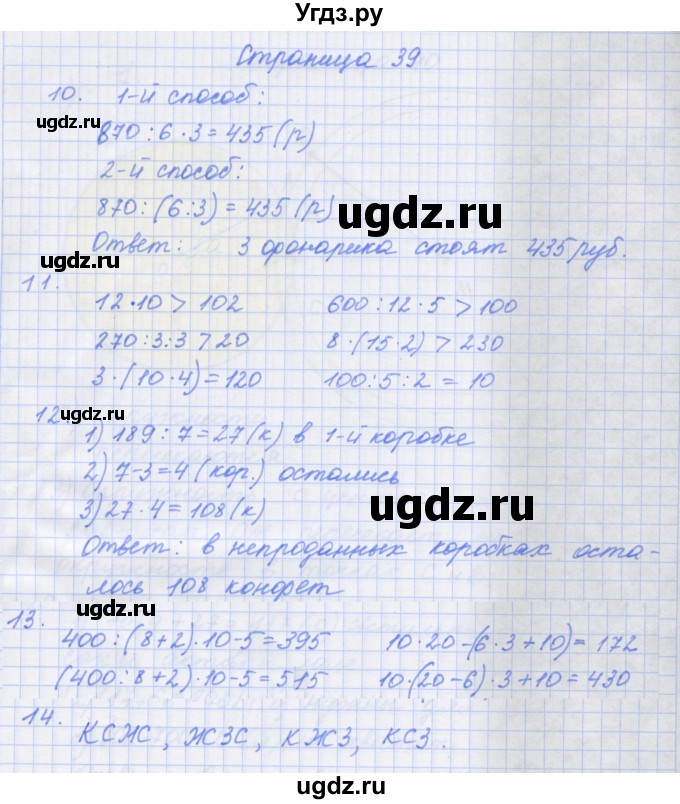 Угдз.ру
Страница 39
10. 1-й способ:
ugdz.ru
870 : 6 · 3 = 435 (р)
2-й способ:
870 : (6 : 3) = 435 (р)
ugdz.ru
Ответ: 3 фонарика стоят 435 руб.
ugdz.ru
11.
12 · 10 > 102 600 : 12 · 5 > 100
270 : 3 : 3 > 20 8 · (15 · 2) > 230
3 · (10 · 4) = 120 100 : 5 : 2 = 10
ugdz.ru
12.
1) 189 : 7 = 27 (к) в 1-й коробке
2) 7 - 3 = 4 (кор.) остались
3) 27 · 4 = 108 (к)
ugdz.ru
Ответ: в непроданных коробках оста-
лось 108 конфет
ugdz.ru
13.
400 : (8 + 2) · 10 - 5 = 395 10 · 20 - (6 · 3 + 10) = 172
(400 : 8 + 2) · 10 - 5 = 515 10 · (20 - 6) · 3 + 10 = 430
14.
КСЖС, ЖЗС, КЖЗ, КСЗ.
ugdz.ru
ugdz.ru